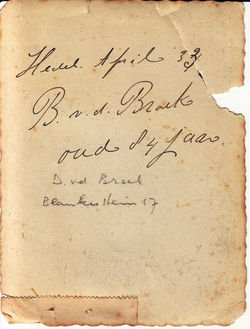 Hedel. April 33
B. v. d. Broek
oud 84 jaar.
D. vd. Broek
Blankenstein 17